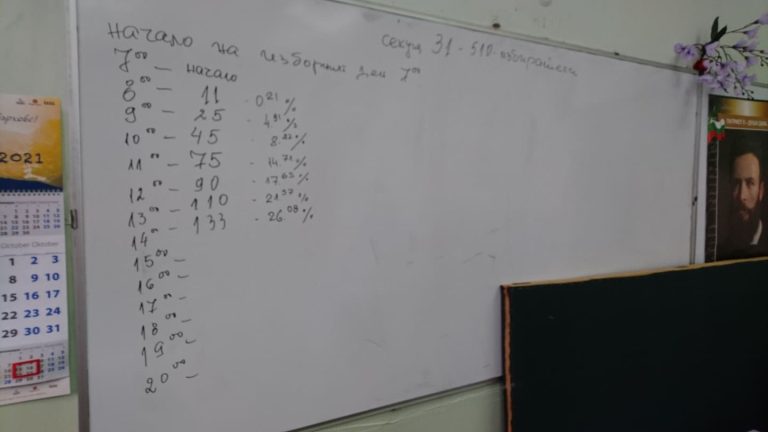 начало на изборния ден 7⁰⁰
секция 31 - 510 избиратели
7⁰⁰ – начало
8⁰⁰ – 11 - 0²¹ %
9⁰⁰ – 25 - 4⁹¹ %
10⁰⁰ – 45 - 8⁸² %
11⁰⁰ – 75 - 14⁷¹ %
12⁰⁰ – 90 - 17⁶⁵ %
13⁰⁰ – 110 - 21⁵⁷ %
14⁰⁰ – 133 - 26⁰⁸ %
15⁰⁰ –
16⁰⁰ –
17⁰⁰ –
18⁰⁰ –
19⁰⁰ –
20⁰⁰ –
ърхове!
2021
October Oktober
1 2 3
8 9 10
15 16 17
22 23 24
29 30 31